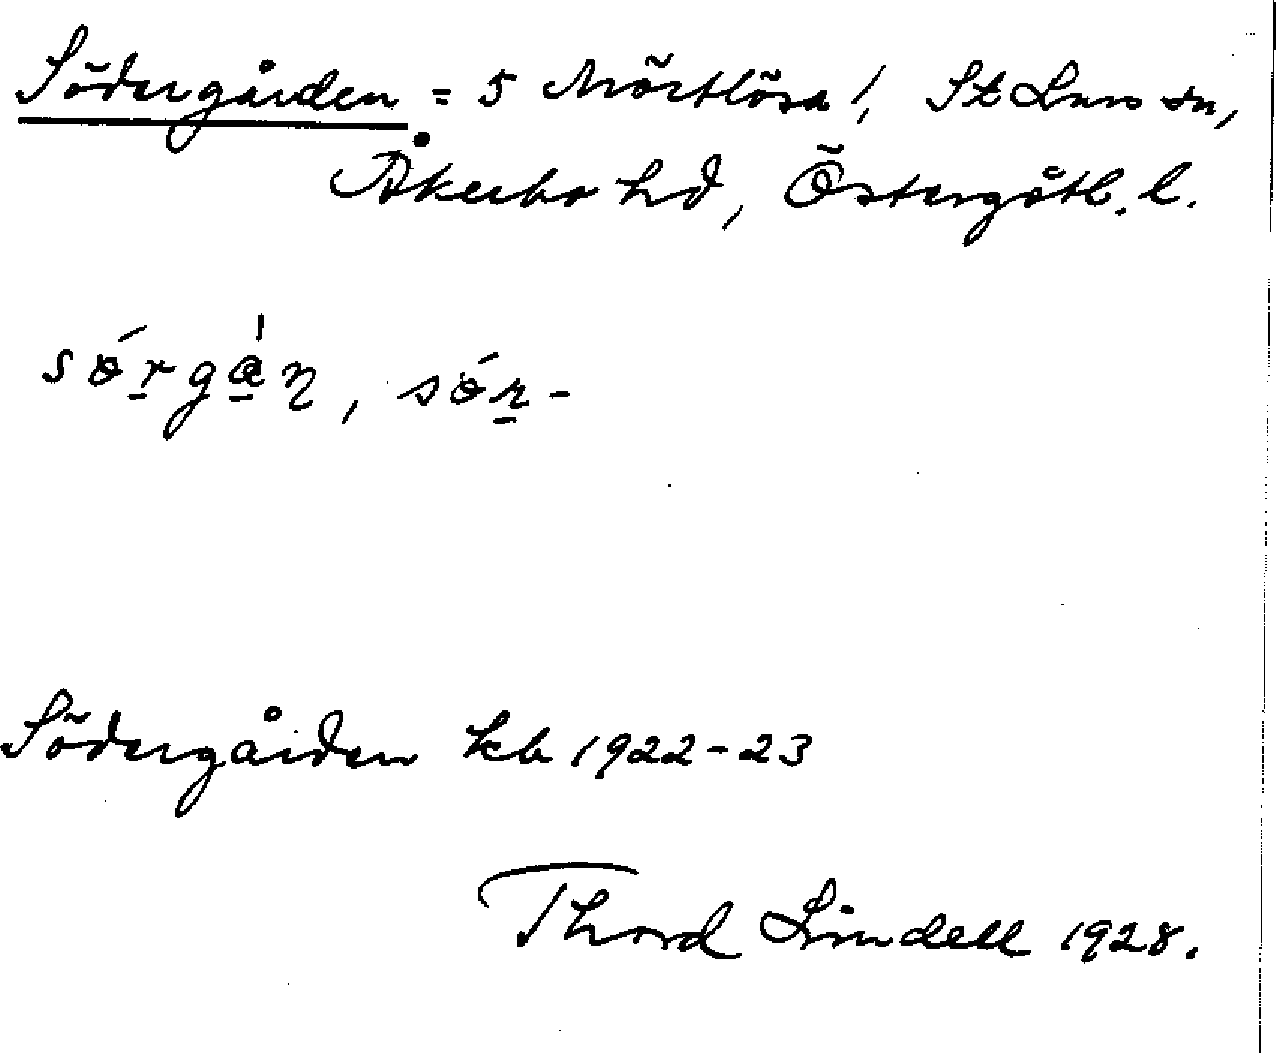 Södergården = 5 Mörtlösa!, St Lars sn,
Åkerbo hd, Östergötl. l.
Södergården kb 1922-23
Thord Lindell 1928.